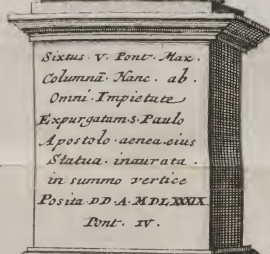 Sixtus · V · Pont · Max ·
Columnā · Hanc · ab ·
Omni · Impietate
Expurgatam · S · Paulo
Apostolo · aenea · eius
Statua · inaurata ·
in summo vertice
Posita DD · A · MDLXXXIX
Pont · IV ·